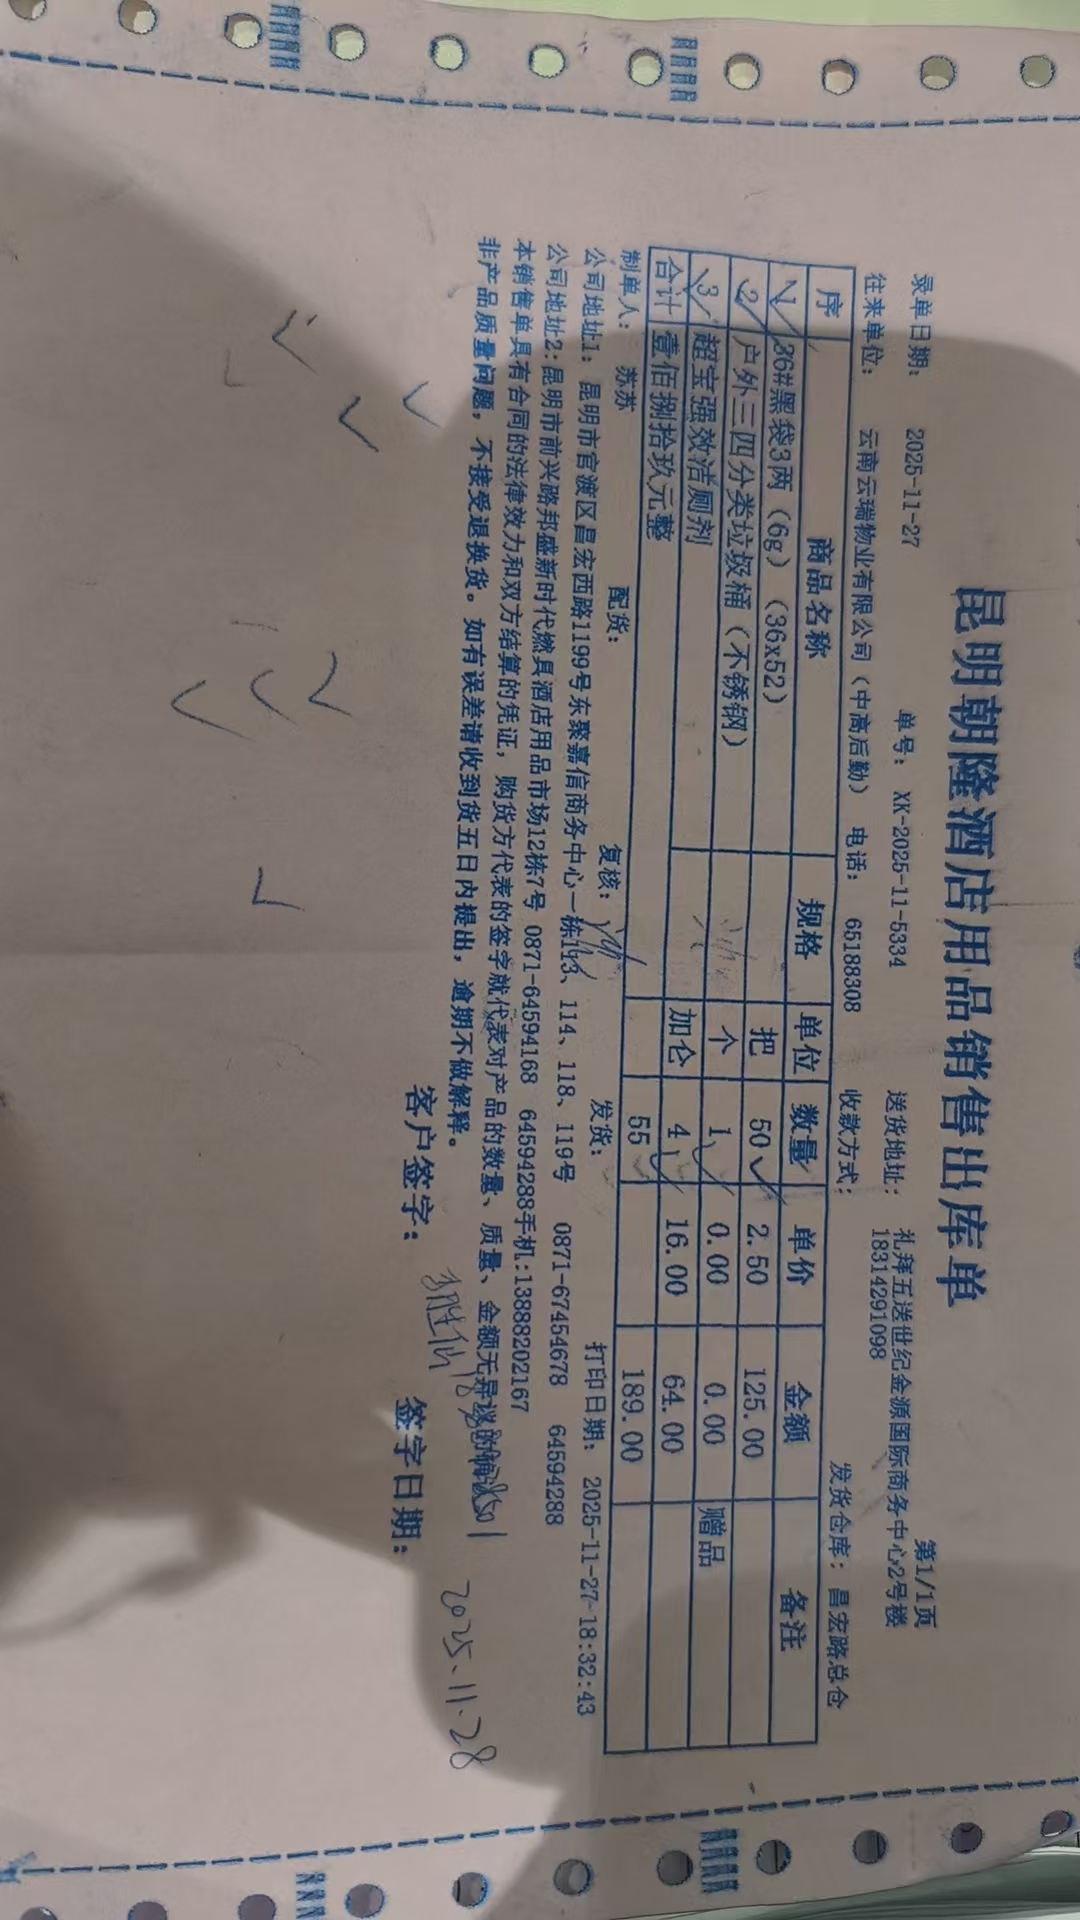 昆明朝隆酒店用品销售出库单
第1/1页
录单日期： 2025-11-27 单号： XK-2025-11-5334 送货地址： 礼拜五送世纪金源国际商务中心2号楼 18314291098
往来单位： 云南云瑞物业有限公司（中高后勤） 电话： 65188308 收款方式： 发货仓库：昌宏路总仓
序 商品名称 规格 单位 数量 单价 金额 备注
1 36#黑袋3两（6g）（36x52） 把 50 2.50 125.00
2 户外三四分类垃圾桶（不锈钢） 个 1 0.00 0.00 赠品
3 超宝强效洁厕剂 加仑 4 16.00 64.00
合计 壹佰捌拾玖元整 55 189.00
制单人： 苏苏 配货： 复核： 发货： 打印日期： 2025-11-27-18:32:43
公司地址1： 昆明市官渡区昌宏西路1199号东聚嘉信商务中心一栋113、114、118、119号 0871-67454678 64594288
公司地址2：昆明市前兴路邦盛新时代燃具酒店用品市场12栋7号 0871-64594168 64594288手机:13888202167
本销售单具有合同的法律效力和双方结算的凭证，购货方代表的签字就代表对产品的数量、质量、金额无异议的确认
非产品质量问题，不接受退换货。如有误差请收到货五日内提出，逾期不做解释。
客户签字： 签字日期：
2025.11.28